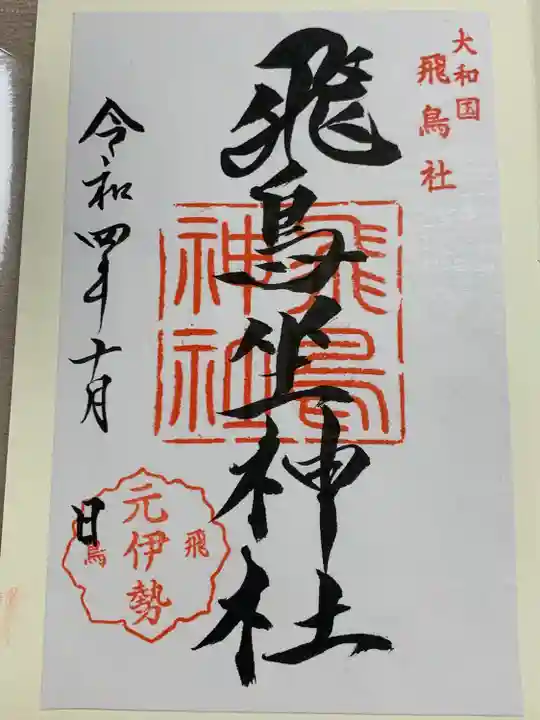 大和国
飛鳥社
飛鳥坐神社
飛鳥
神社
令和四年十月
日
元伊勢
飛鳥